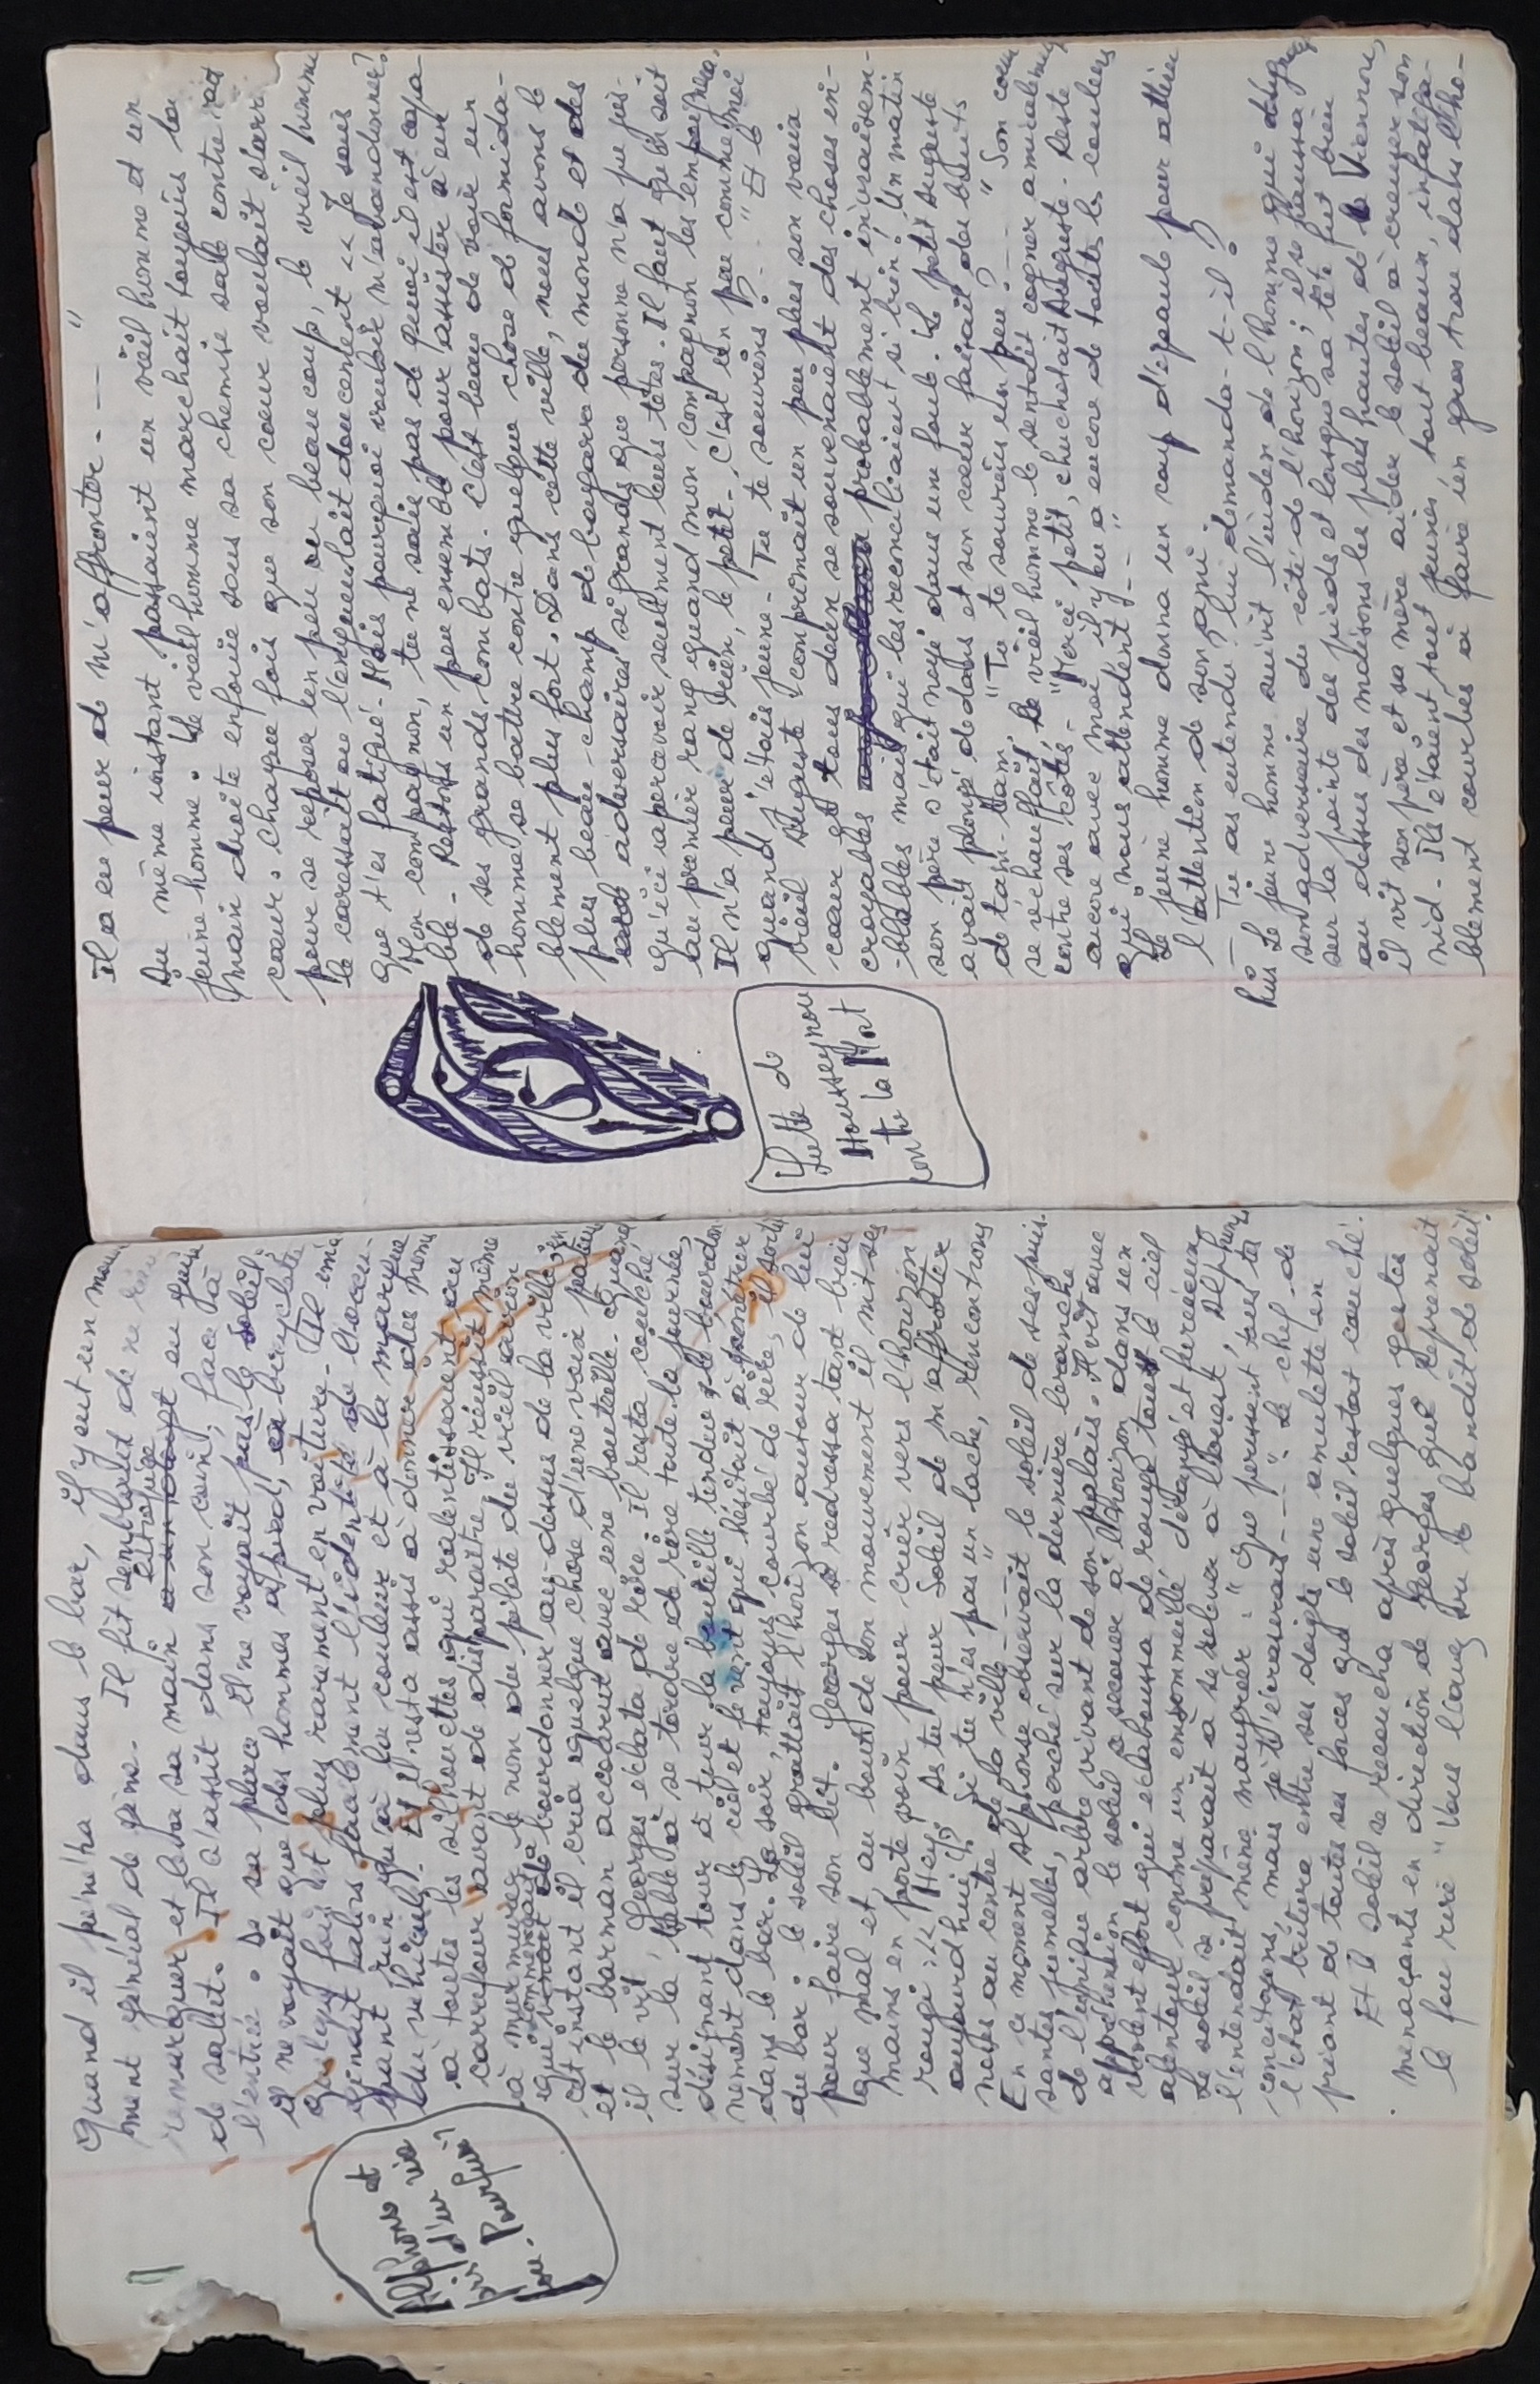 Quand il pénétra dans le bar, il y eut un mou
ment général de gêne. Il fit semblant de ne rien
remarquer et leva sa main en guise
de salut. Il s'assit dans son coin, face à
l'entrée. De sa place il ne voyait pas le soleil.
Il ne voyait que des hommes à pied, en bicyclette
quelques fois et plus rarement en voiture. Il ima
ginait alors facilement l'identité de l'occu-
pant rien qu'à la couleur et à la marque
du véhicule. Et il resta assis à donner des noms
à toutes les silhouettes qui ralentissaient au
carrefour avant de disparaître. Il réussit même
à murmurer le nom du pilote du vieil avion
qui commençait à bourdonner au-dessus de la ville. En
cet instant il cria quelque chose d'une voix
et le barman accourut avec une bouteille. Quand
il le vit, Georges éclata de rire. Il resta couché
sur la table à se tordre de rire toute la journée,
désignant tour à tour la bouteille tendue, le bourdon-
nement dans le ciel et le vent qui hésitait à pénétrer
dans le bar. Le soir, toujours courbé de rire, il sortit
du bar. Le soleil grattait l'horizon autour de lui
pour faire son lit. Georges se redressa tant bien
que mal et, au bout de son mouvement il mit ses
mains en porte voix pour crier vers l'horizon
rougi : << Hey! As tu peur Soleil de m'affronter
aujourd'hui? Si tu n'es pas un lâche, rencontrons
nous au centre de la ville ---"
En ce moment Alphonse observait le soleil de ses puis-
santes jumelles, perché sur la dernière branche
de l'unique arbre vivant de son palais. Il vit avec
appréhension le soleil se secouer à l'horizon dans un
violent effort qui éclaboussa de rouge tout le ciel
alentour comme un ensommeillé dérangé et furieux.
Le soleil se préparait à se relever à l'ouest, Alphonse
l'entendait même maugréer : "Que périssent tous tes
concitoyens, mais je t'écraserai ---" Le chef de
l'état triture entre ses doigts une amulette en
priant de toutes ses forces que le soleil restât couché.
Et le soleil se recoucha après quelques gestes
menaçants en direction de Georges que reprenait
le fou rire "Vous l'avez vu le bandit de soleil!
Alphonse et
Il a eu peur de m'affronter. ---"
Au même instant passaient un vieil homme et un
jeune homme. Le vieil homme marchait toujours la
main droite enfouie sous sa chemise sale contre son
cœur. Chaque fois que son cœur voulait s'arrê
pour se reposer un peu ou beaucoup, le vieil homme
le caressait ou l'engueulait doucement << Je sais
que t'es fatigué. Mais pourquoi vouloir m'abandonner?
Mon compagnon, tu ne sais pas de quoi il est capa
ble. Restons un peu ensemble pour assister à un
de ses grands combats. C'est beau de voir un
homme se battre contre quelque chose de formida-
blement plus fort. Dans cette ville, nous avons le
plus beau champ de bagarre du monde et des
adversaires si grands que personne n'a pu jus-
qu'ici apercevoir seulement leurs têtes. Il faut qu'on soit
au premier rang quand mon compagnon les empoignera.
Il n'a peur de rien, le petit. C'est un peu comme moi
quand j'étais jeune. Tu te souviens? --- "Et le
vieil Auguste comprimait un peu plus son vieux
cœur et tous deux se souvenaient des choses in-
croyables probablement invraisem-
-blables mais qui les réconciliaient si bien! Un matin
son père s'était noyé dans un foule. Le petit Auguste
avait plongé dedans et son cœur faisait des bruits
de tam-tam. "Tu te souviens un peu? ---" Son cœur
se réchauffait. Le vieil homme le sentait cogner amicalement
contre ses côtes. "Merci petit, chuchotait Auguste. Reste
encore avec moi il y en a encore de toutes les couleurs
qui nous attendent ---"
Le jeune homme donna un coup d'épaule pour attirer
l'attention de son ami.
— Tu as entendu? lui demanda-t-il?
Le jeune homme suivit l'index de l'homme qui
son adversaire du côté de l'horizon; il se haussa
sur la pointe des pieds et lorsque sa tête fut bien
au dessus des maisons les plus hautes de
il vit son père et sa mère aider le soleil à creuser son
nid. Ils étaient tout jeunes, tout beaux, infatiga-
blement courbés à faire un gros trou dans l'ho-
Lutte de
Housseynou
contre la Mort